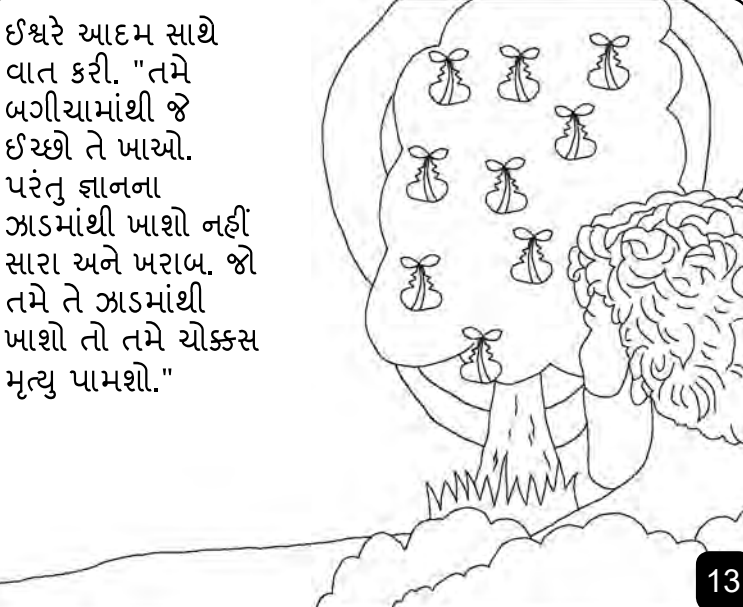 ઈશ્વરે આદમ સાથે
વાત કરી. "તમે
બગીચામાંથી જે
ઈચ્છો તે ખાઓ.
પરંતુ જ્ઞાનના
ઝાડમાંથી ખાશો નહીં
સારા અને ખરાબ. જો
તમે તે ઝાડમાંથી
ખાશો તો તમે ચોક્કસ
મૃત્યુ પામશો."
13